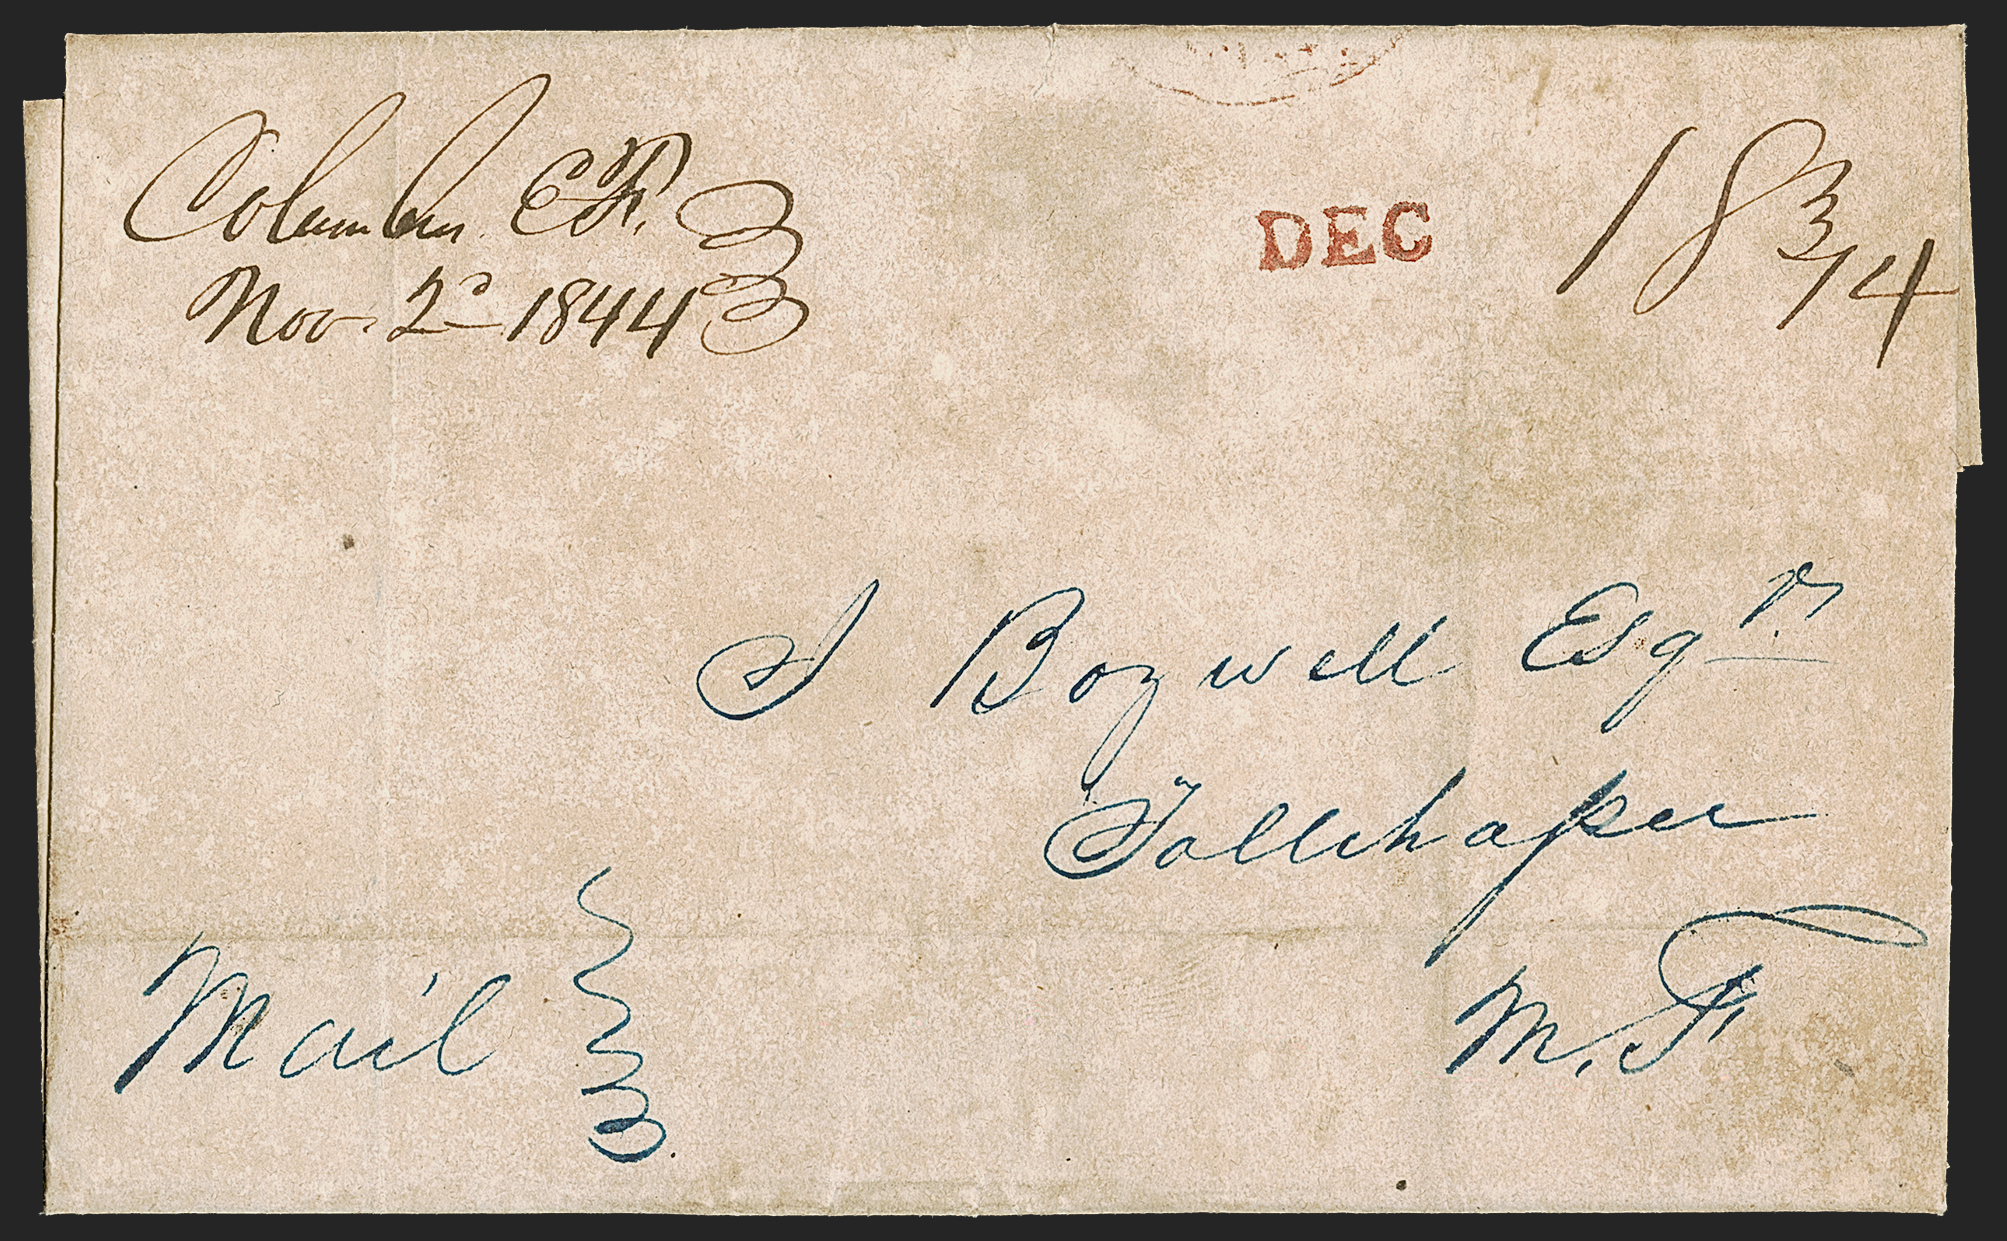 Columbus E.F.
Nov. 2d 1844
DEC
18 3/4
J Bozwell Esqr.
Tallehapee
M. F.
Mail